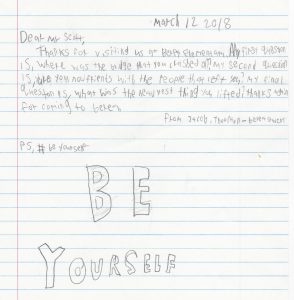 March 12 2018
Dear mr Scott,
Thanks for visiting us at Beren elementary. My first question
is, where was the bridge that you crossed at? my second question
is, are you now friends with the people that left you? my final
question is, what was the heaviest thing you lifted? thanks
for coming to beren
From, Jacob,
P.S, # be yourself
BE
YOURSELF